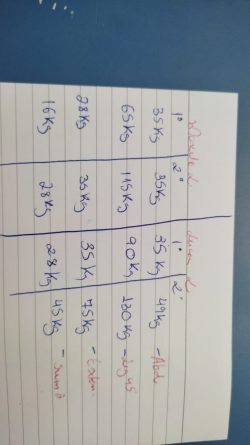 1° 2° 1° 2°
35Kg 35Kg 35Kg 49Kg - Abd
65Kg 115Kg 90Kg 130Kg - Leg 45
28Kg 35Kg 35Kg 75Kg - Exten
16Kg 28Kg 28Kg 45Kg - Sumô